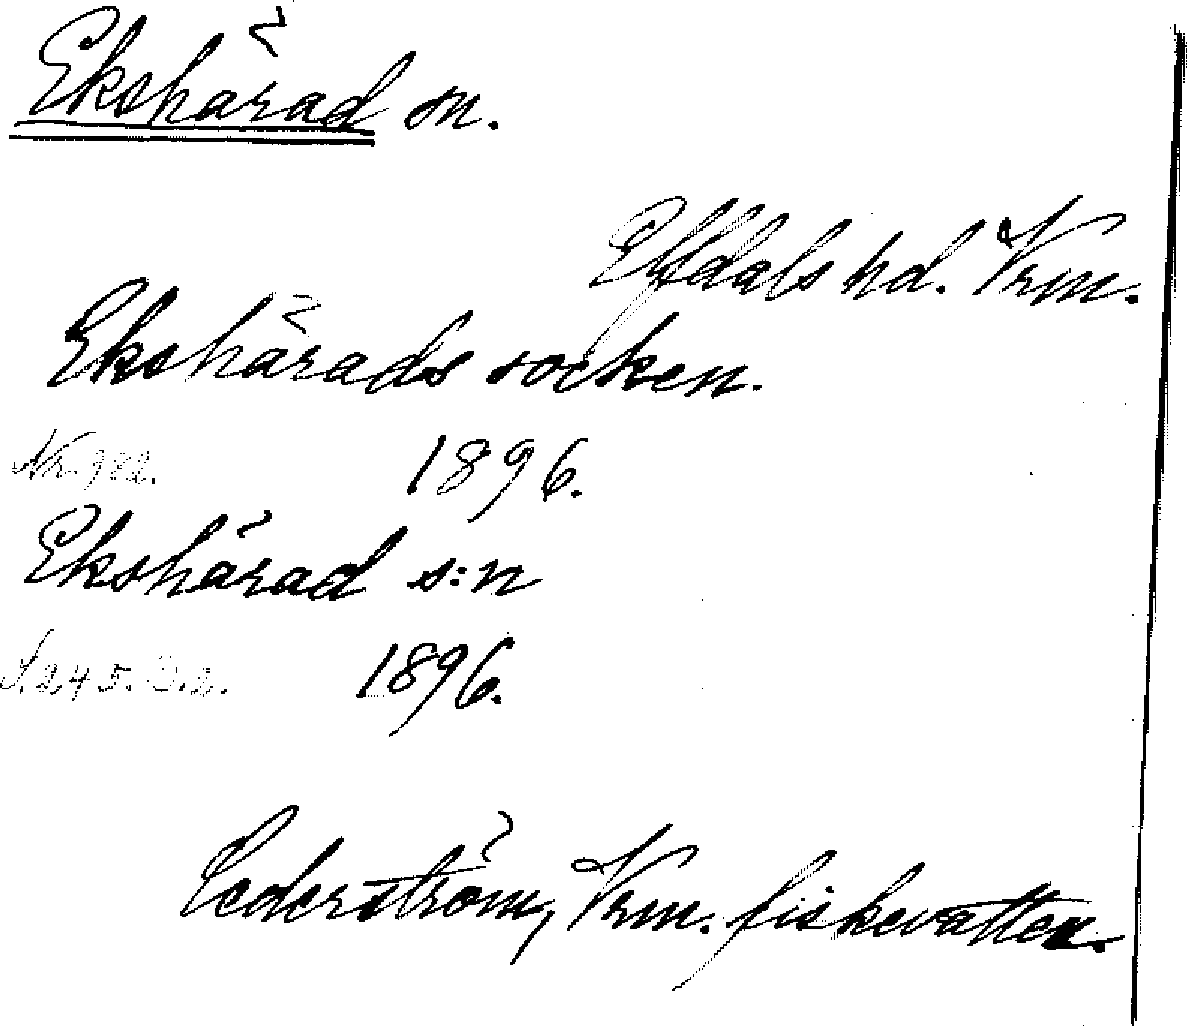 Ekshärad sn.
Elfdals hd. Vrm.
Ekshärads socken.
Nr 982.
1896.
Ekshärad s:n
S. 245. D.2.
1896.
Cederström, Vrm. fiskevatten.